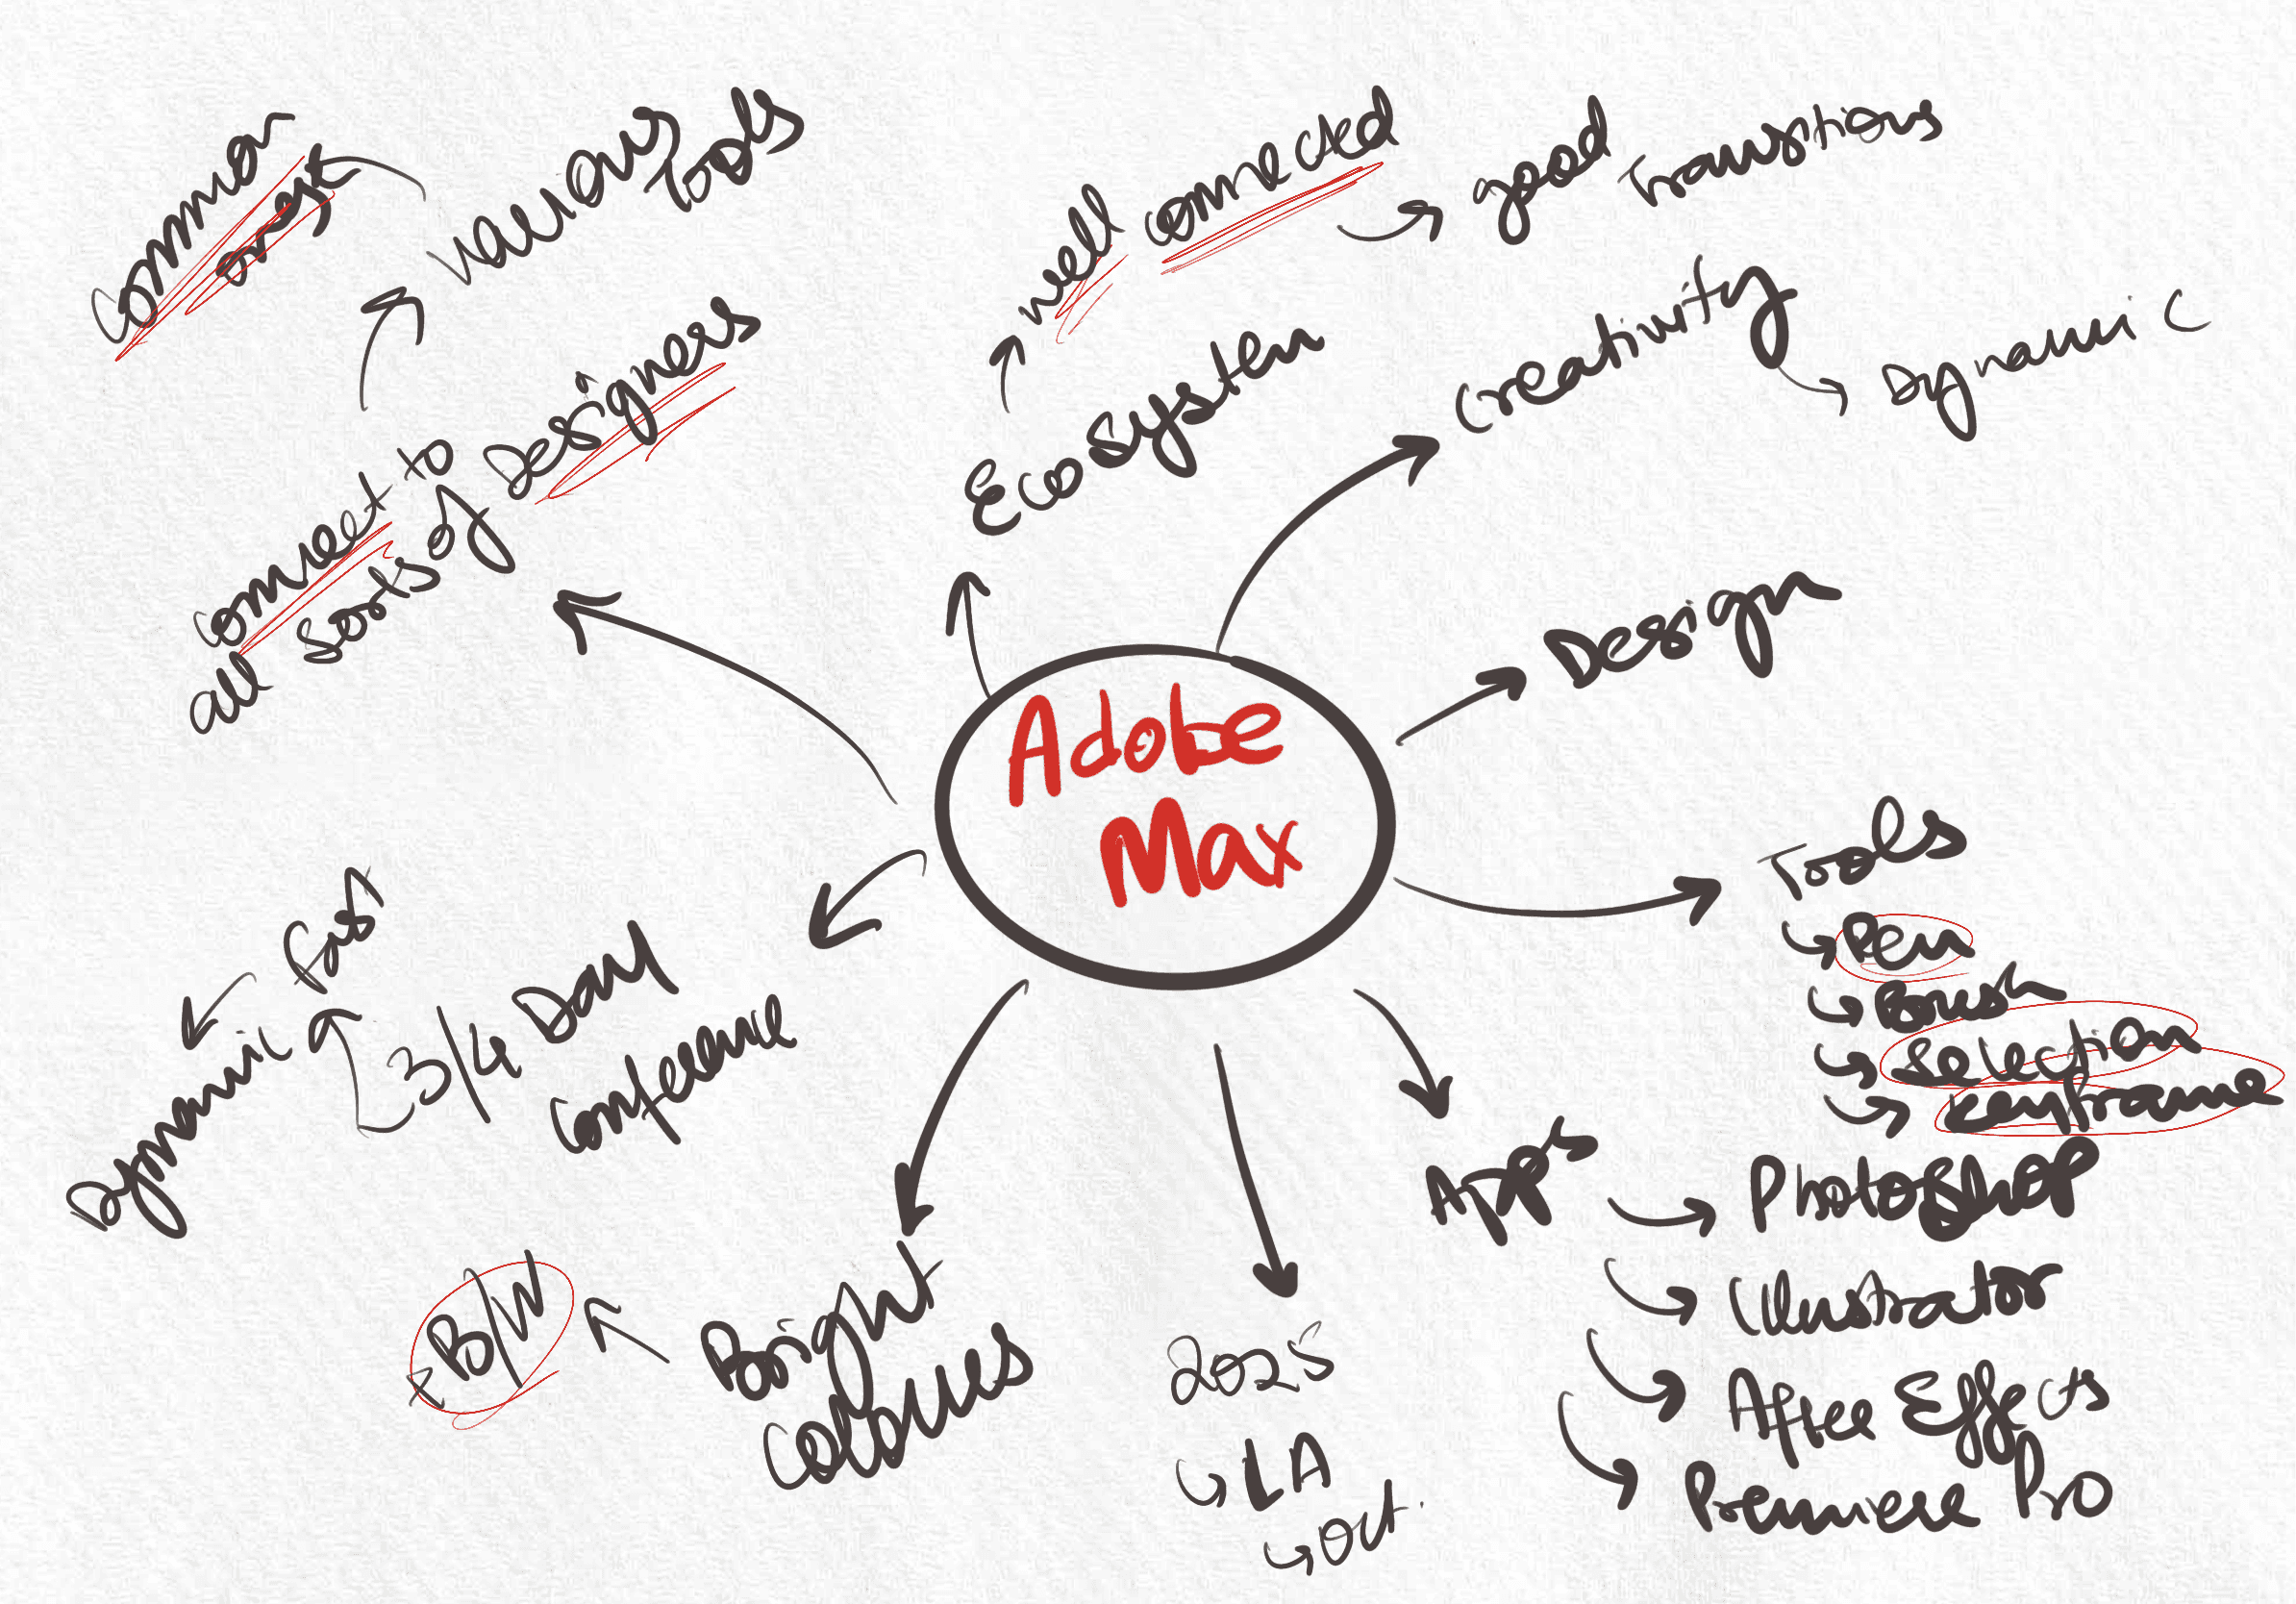 Common
ones
various
tools
connect to
all sorts of Designers
well connected
good Transitions
Ecosystem
Creativity
Dynamic
Design
Adobe
Max
Tools
Pen
Brush
Selection
Keyframe
Apps
Photoshop
Illustrator
After Effects
Premiere Pro
2025
LA
Oct.
Bright
Colours
+B/W
3/4 Day
Conference
fast
Dynamic